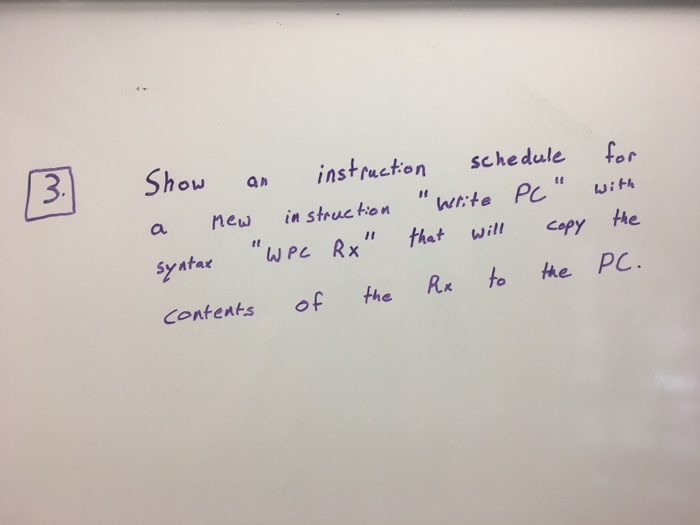 3. Show an instruction schedule for
a new instruction "write PC" with
syntax "WPC Rx" that will copy the
contents of the Rx to the PC.